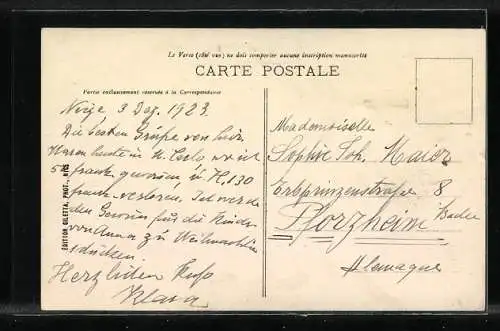 Le Verso (côté vue) ne doit comporter aucune inscription manuscrite
CARTE POSTALE
Partie exclusivement réservée à la Correspondance
Nizza 3 Dez. 1923.
Die besten Grüße von hier.
Waren heute in M. Carlo, wo ich
5 frank gewonnen u. H. 130
frank verloren. Ich werde
den Gewinn für die Kinder
von Anna zu Weihnachten
schicken.
Herzlichen Kuss
Klara
EDITION GILETTA, PHOT., NICE
Mademoiselle
Sophie Joh. Maier
Erbprinzenstraße 8
Pforzheim Baden
Allemagne